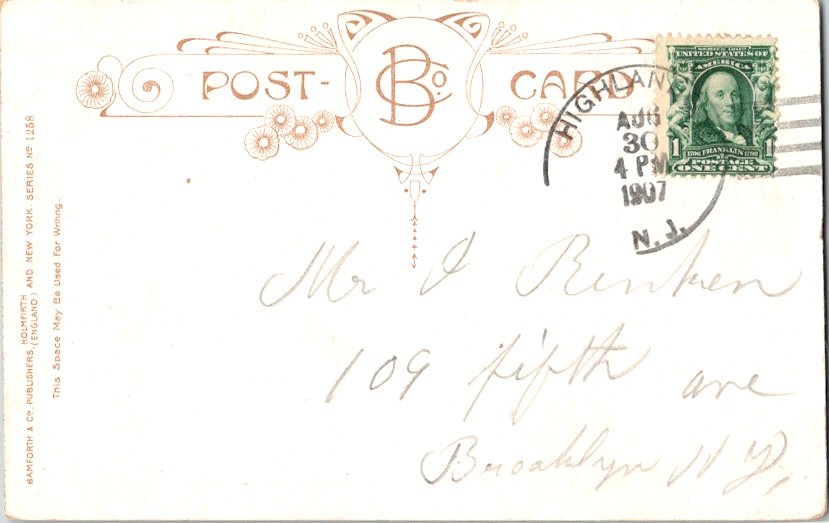 POST- BCo. CARD
SERIES 1902
UNITED STATES OF
AMERICA
1 FRANKLIN 1
POSTAGE
ONE CENT
HIGHLAND
AUG
30
4 PM
1907
N.J.
Mr J Renken
109 fifth ave
Brooklyn N Y,
This Space May Be Used For Writing.
BAMFORTH & CO. PUBLISHERS, HOLMFIRTH (ENGLAND) AND NEW YORK. SERIES No 1258